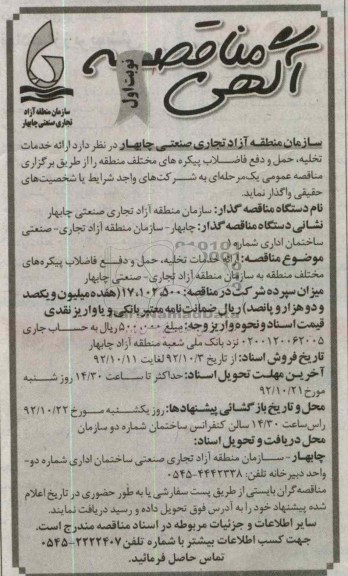 آگهی مناقصه
نوبت اول
سازمان منطقه آزاد
تجاری صنعتی چابهار
سازمان منطقه آزاد تجاری صنعتی چابهار در نظر دارد ارائه خدمات
تخلیه، حمل و دفع فاضلاب پیکره های مختلف منطقه را از طریق برگزاری
مناقصه عمومی یک مرحله‌ای به شرکت‌های واجد شرایط یا شخصیت‌های
حقیقی واگذار نماید.
نام دستگاه مناقصه گذار: سازمان منطقه آزاد تجاری صنعتی چابهار
نشانی دستگاه مناقصه گذار: چابهار - سازمان منطقه آزاد تجاری- صنعتی
ساختمان اداری شماره
موضوع مناقصه: ارائه خدمات تخلیه، حمل و دفع فاضلاب پیکره‌های
مختلف منطقه به سازمان منطقه آزاد تجاری - صنعتی چابهار
میزان سپرده شرکت در مناقصه: ۱۷،۱۰۲،۵۰۰ (هفده میلیون و یکصد
و دو هزار و پانصد) ریال ضمانت نامه معتبر بانکی و یا واریز نقدی
قیمت اسناد و نحوه واریز وجه: مبلغ ۵۰۰۰۰۰ ریال به حساب جاری
۰۲۰۰۱۲۰۰۶۲۰۰۵ نزد بانک ملی شعبه منطقه آزاد چابهار
تاریخ فروش اسناد: از تاریخ ۹۲/۱۰/۳ لغایت ۹۲/۱۰/۱۱
آخرین مهلت تحویل اسناد: حداکثر تا ساعت ۱۴/۳۰ روز شنبه
مورخ ۹۲/۱۰/۲۱
محل و تاریخ بازگشائی پیشنهادها: روز یکشنبه مورخ ۹۲/۱۰/۲۲
راس ساعت ۱۴/۳۰ سالن کنفرانس ساختمان شماره دو سازمان
محل دریافت و تحویل اسناد:
چابهار - سازمان منطقه آزاد تجاری صنعتی ساختمان اداری شماره دو-
واحد دبیرخانه تلفن: ۴۴۴۲۳۳۸-۰۵۴۵
مناقصه گران بایستی از طریق پست سفارشی یا به طور حضوری در تاریخ اعلام
شده پیشنهاد خود را به آدرس فوق تحویل داده و رسید دریافت نمایند.
سایر اطلاعات و جزئیات مربوطه در اسناد مناقصه مندرج است.
جهت کسب اطلاعات بیشتر با شماره تلفن ۲۲۲۲۴۰۷-۰۵۴۵
تماس حاصل فرمائید.